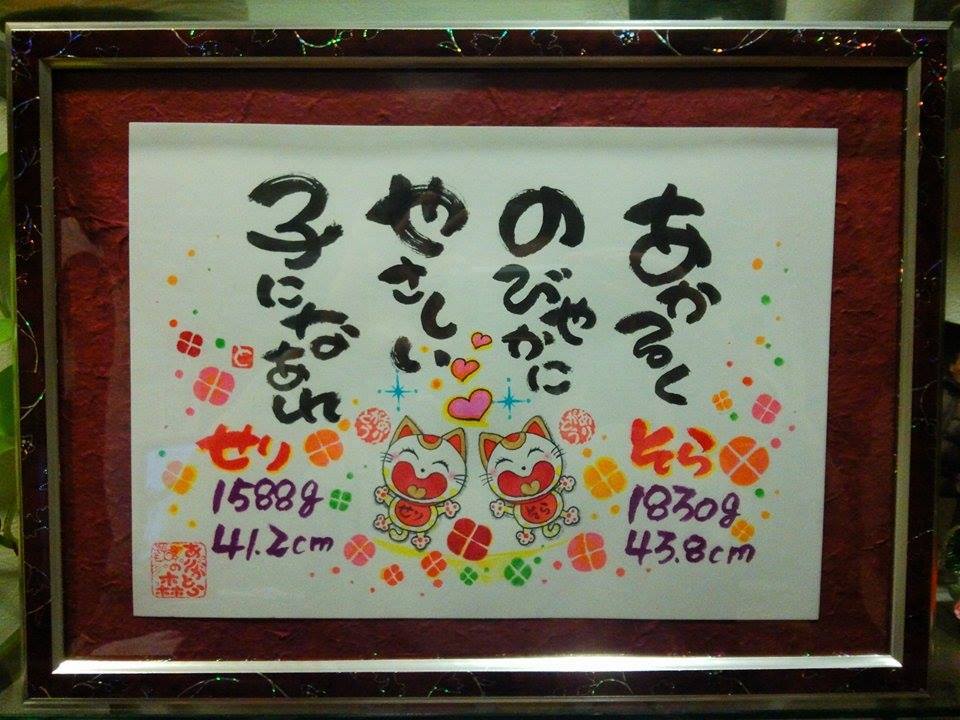 あかるく
のびやかに
やさしい
子になあれ
そら
1830g
43.8cm
せり
1588g
41.2cm
せり
そら